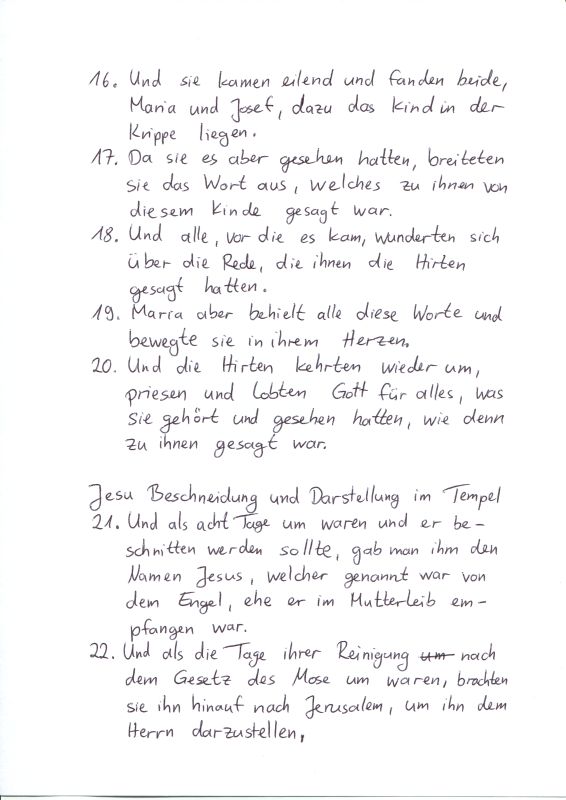 16. Und sie kamen eilend und fanden beide,
Maria und Josef, dazu das Kind in der
Krippe liegen.
17. Da sie es aber gesehen hatten, breiteten
sie das Wort aus, welches zu ihnen von
diesem Kinde gesagt war.
18. Und alle, vor die es kam, wunderten sich
über die Rede, die ihnen die Hirten
gesagt hatten.
19. Maria aber behielt alle diese Worte und
bewegte sie in ihrem Herzen.
20. Und die Hirten kehrten wieder um,
priesen und lobten Gott für alles, was
sie gehört und gesehen hatten, wie denn
zu ihnen gesagt war.
Jesu Beschneidung und Darstellung im Tempel
21. Und als acht Tage um waren und er be-
schnitten werden sollte, gab man ihm den
Namen Jesus, welcher genannt war von
dem Engel, ehe er im Mutterleib em-
pfangen war.
22. Und als die Tage ihrer Reinigung um nach
dem Gesetz des Mose um waren, brachten
sie ihn hinauf nach Jerusalem, um ihn dem
Herrn darzustellen,